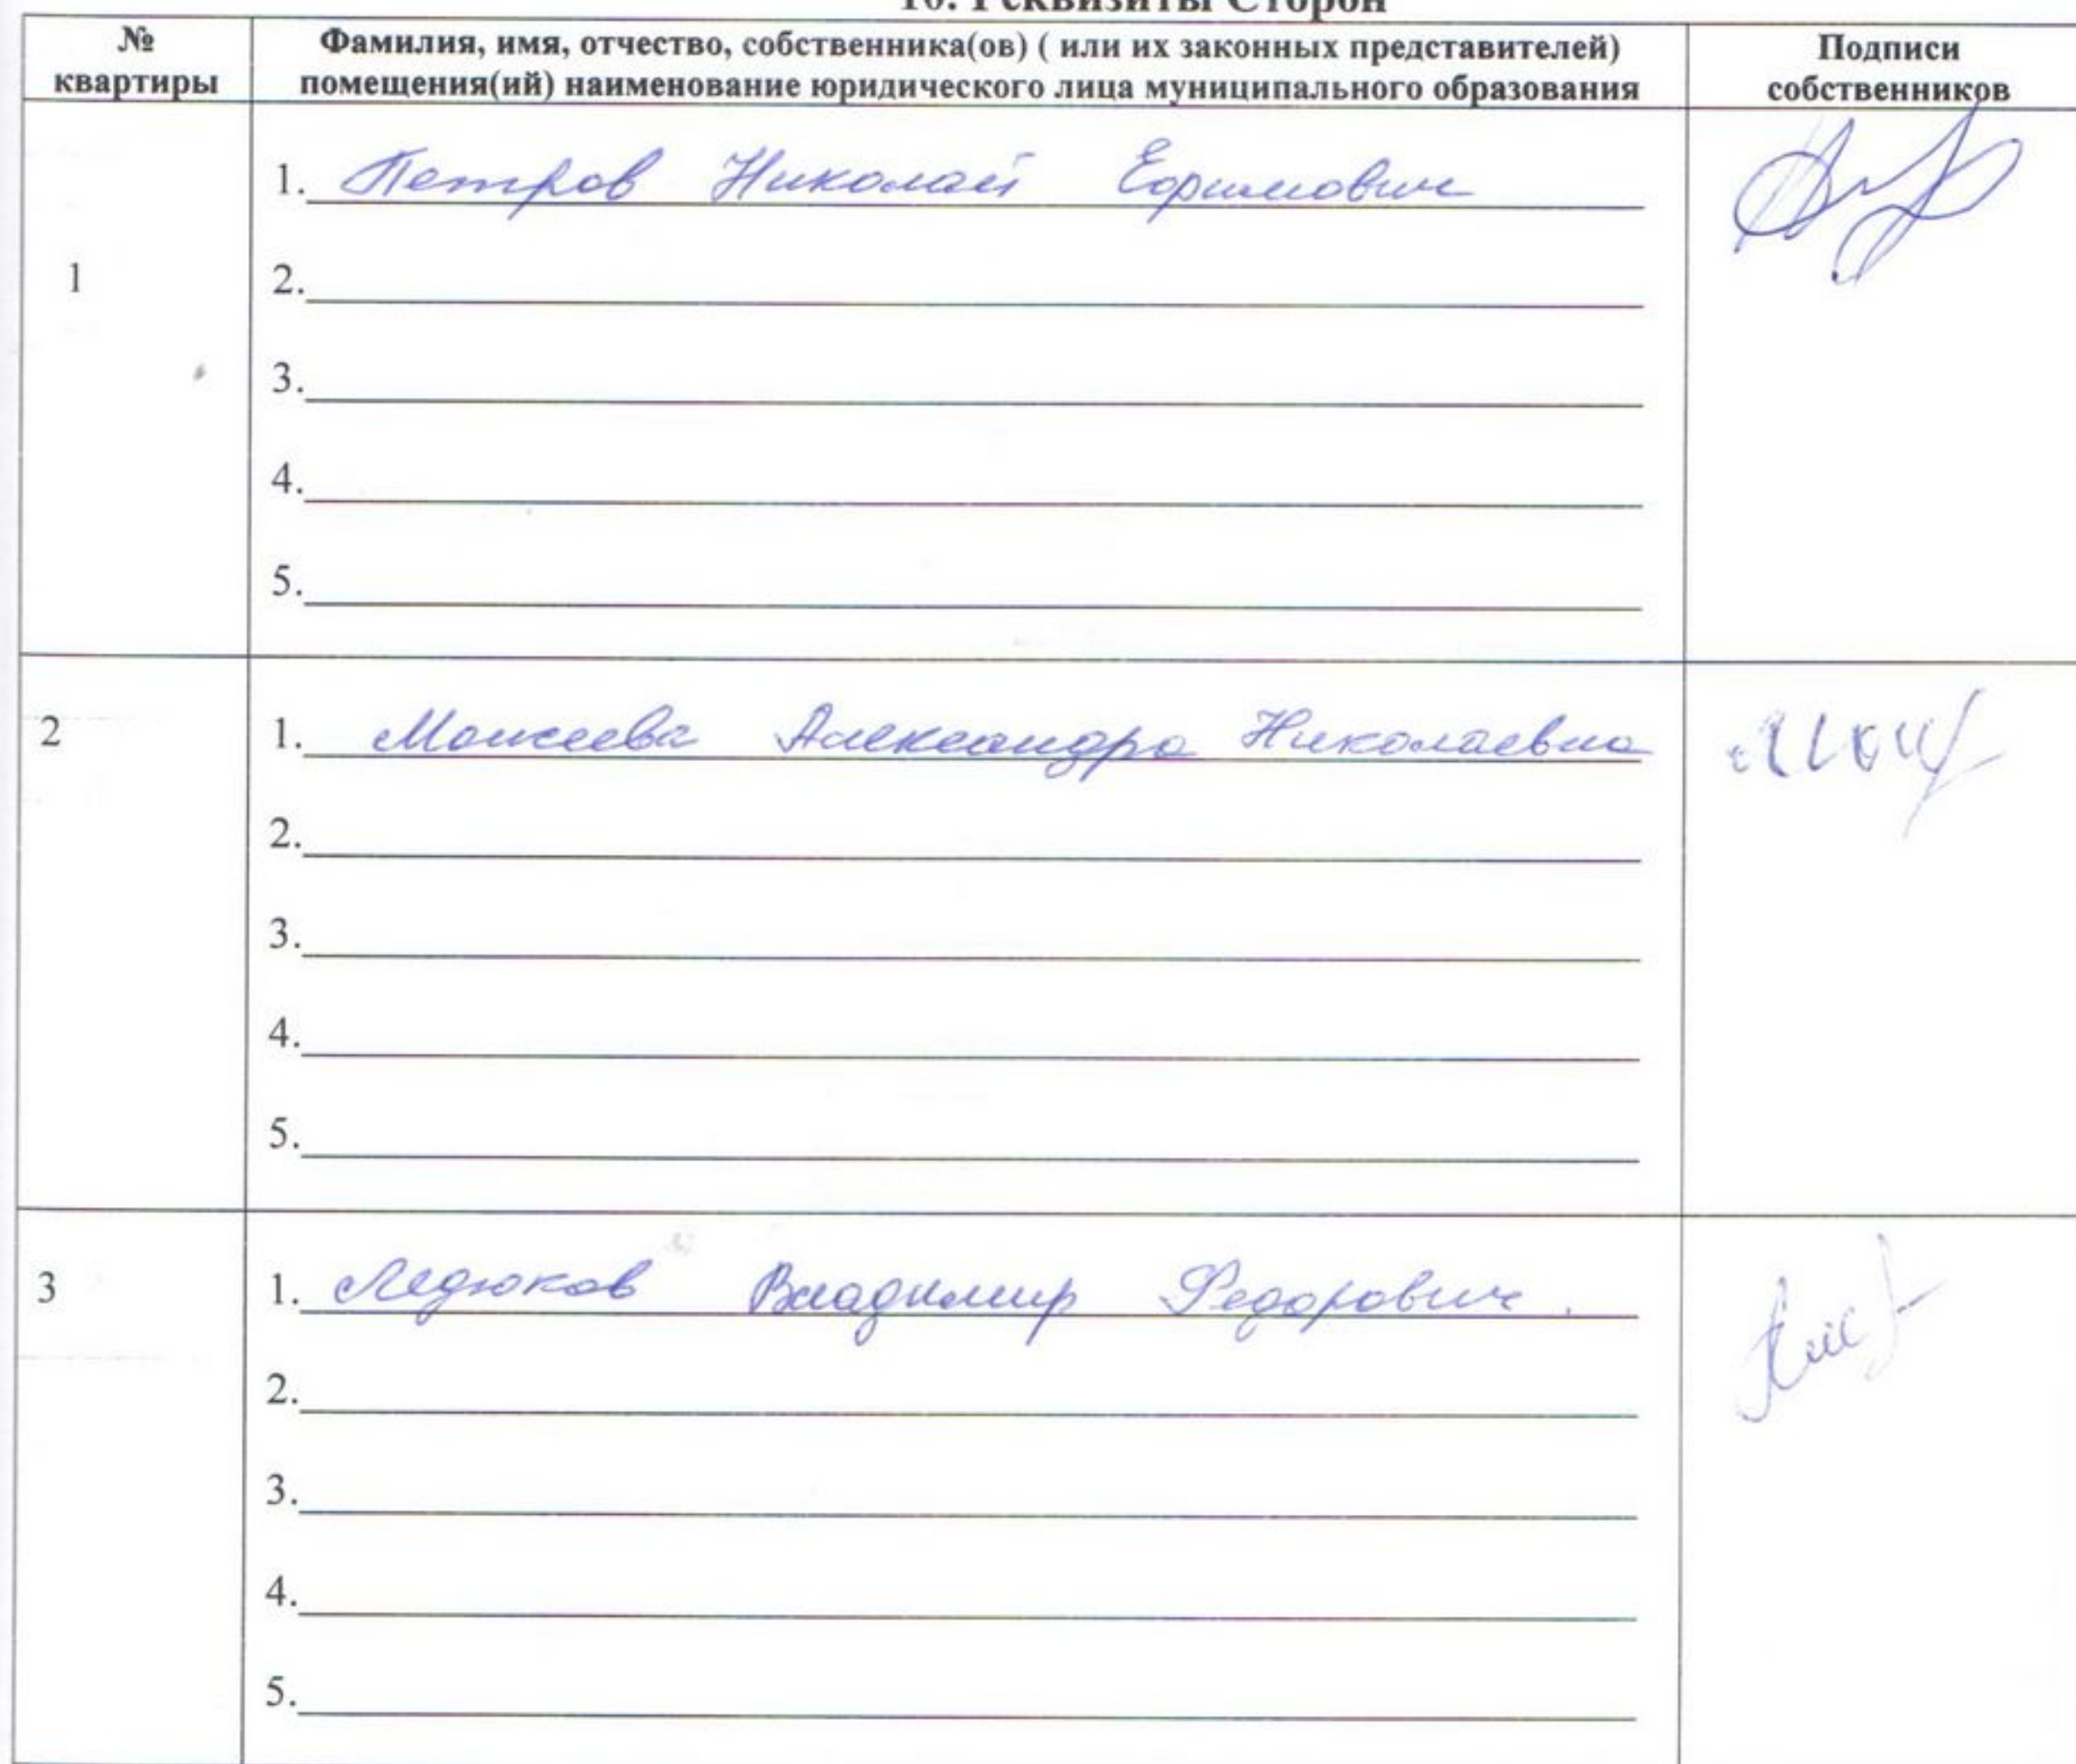 10. Реквизиты Сторон
№ квартиры
Фамилия, имя, отчество, собственника(ов) ( или их законных представителей) помещения(ий) наименование юридического лица муниципального образования
Подписи собственников
1
1. Петров Николай Ефимович
2.
3.
4.
5.
2
1. Моисеева Александра Николаевна
2.
3.
4.
5.
3
1. Ледюков Владимир Федорович.
2.
3.
4.
5.